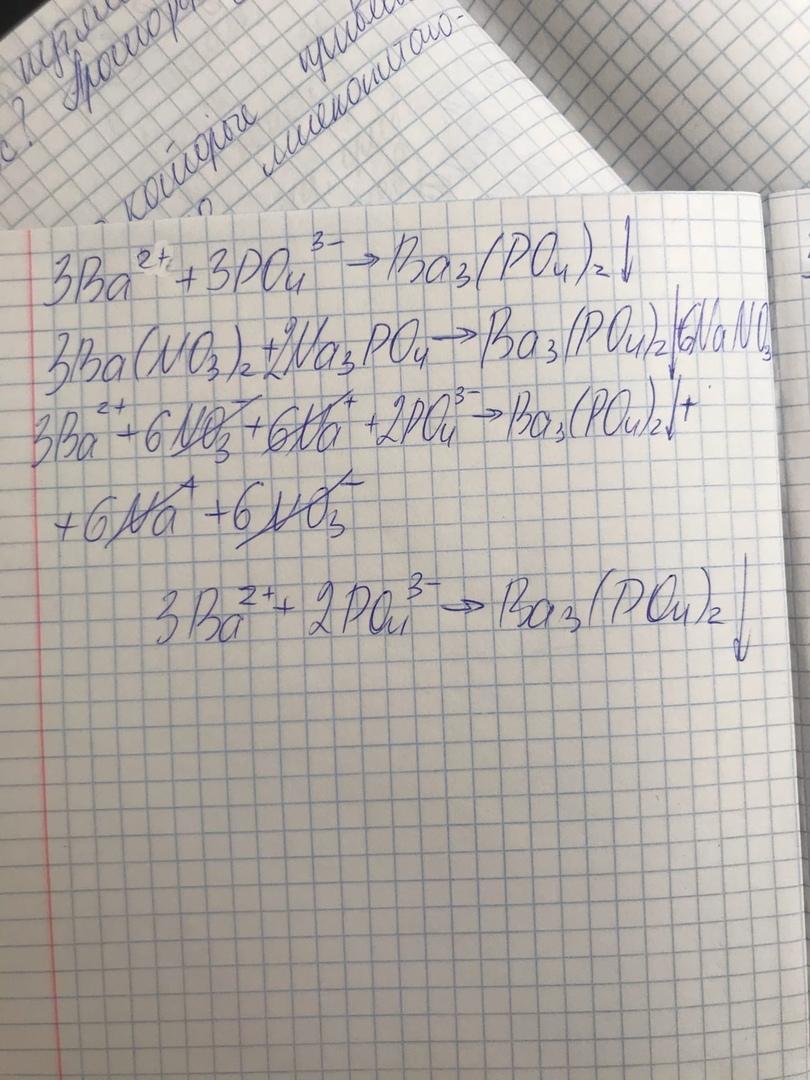 с? Простор
которые
3Ba²⁺ + 3PO₄³⁻ → Ba₃(PO₄)₂↓
3Ba(NO₃)₂ + 2Na₃PO₄ → Ba₃(PO₄)₂↓ 6NaNO₃
3Ba²⁺ + 6NO₃⁻ + 6Na⁺ + 2PO₄³⁻ → Ba₃(PO₄)₂↓ +
+ 6Na⁺ + 6NO₃⁻
3Ba²⁺ + 2PO₄³⁻ → Ba₃(PO₄)₂↓